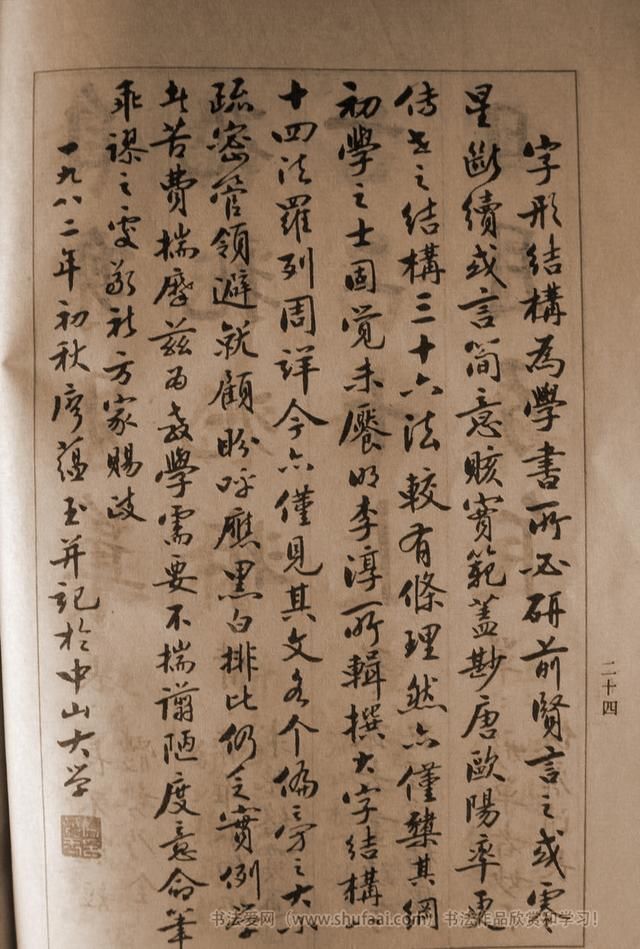 字形結構為學書所必研前賢言之或零
星斷續或言簡意賅實範蓋尠唐歐陽率更
傳世之結構三十六法較有條理然亦僅舉其綱
初學之士固覺未饜明李淳所輯撰大字結構八
十四法羅列周詳今亦僅見其文各个偏旁之大小
疏密管領避就顧盼呼應黑白排比仍乏實例學
者苦費揣摩茲為教學需要不揣譾陋度意命筆
乖謬之處敬祈方家賜政
一九八二年初秋廖蘊玉并記於中山大学
二十四
书法爱网（www.shufaai.com）书法作品欣赏和学习！